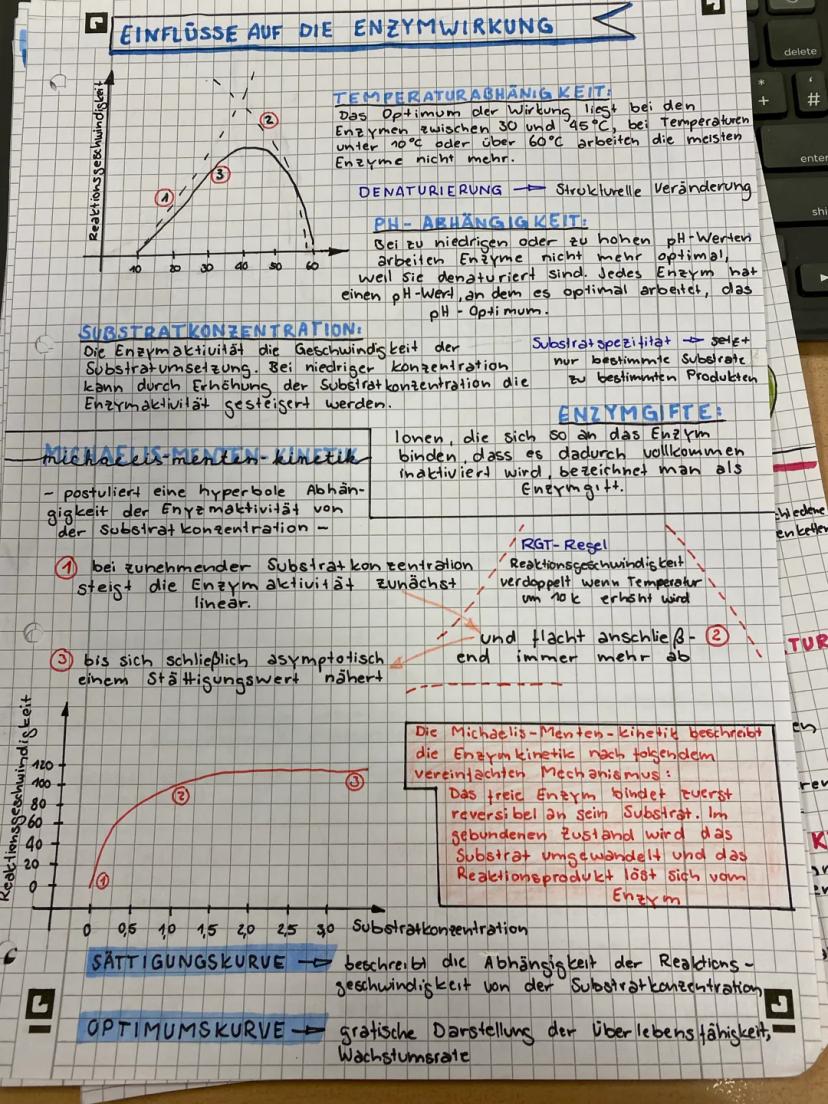 EINFLÜSSE AUF DIE ENZYMWIRKUNG
Reaktionsgeschwindigkeit
1
2
3
10 20 30 40 50 60
TEMPERATURABHÄNGIGKEIT:
Das Optimum der Wirkung liegt bei den
Enzymen zwischen 30 und 45°C, bei Temperaturen
unter 10°C oder über 60°C arbeiten die meisten
Enzyme nicht mehr.
DENATURIERUNG → Strukturelle Veränderung
PH-ABHÄNGIGKEIT:
Bei zu niedrigen oder zu hohen pH-Werten
arbeiten Enzyme nicht mehr optimal,
weil sie denaturiert sind. Jedes Enzym hat
einen pH-Wert, an dem es optimal arbeitet, das
pH-Optimum.
SUBSTRATKONZENTRATION:
Die Enzymaktivität die Geschwindigkeit der
Substratumsetzung. Bei niedriger Konzentration
kann durch Erhöhung der Substratkonzentration die
Enzymaktivität gesteigert werden.
Substratspezifität → setzt
nur bestimmte Substrate
zu bestimmten Produkten
ENZYMGIFTE:
Ionen, die sich so an das Enzym
binden, dass es dadurch vollkommen
inaktiviert wird, bezeichnet man als
Enzymgift.
MICHAELIS-MENTEN-KINETIK
- postuliert eine hyperbole Abhän-
gigkeit der Enyzmaktivität von
der Substratkonzentration -
1 bei zunehmender Substratkonzentration
steigt die Enzymaktivität zunächst
linear.
RGT-Regel
Reaktionsgeschwindigkeit
verdoppelt wenn Temperatur
um 10k erhöht wird
und flacht anschließ- 2
end immer mehr ab
3 bis sich schließlich asymptotisch
einem Stättigungswert nähert
Reaktionsgeschwindigkeit
120
100
80
60
40
20
0
1
2
3
0 0,5 1,0 1,5 2,0 2,5 3,0 Substratkonzentration
Die Michaelis-Menten-Kinetik beschreibt
die Enzymkinetik nach folgendem
vereinfachten Mechanismus:
Das freie Enzym bindet zuerst
reversibel an sein Substrat. Im
gebundenen Zustand wird das
Substrat umgewandelt und das
Reaktionsprodukt löst sich vom
Enzym
SÄTTIGUNGSKURVE → beschreibt die Abhängigkeit der Reaktions-
geschwindigkeit von der Substratkonzentration
OPTIMUMSKURVE → grafische Darstellung der Überlebensfähigkeit,
Wachstumsrate
delete
enter
shi
*
+
'
#